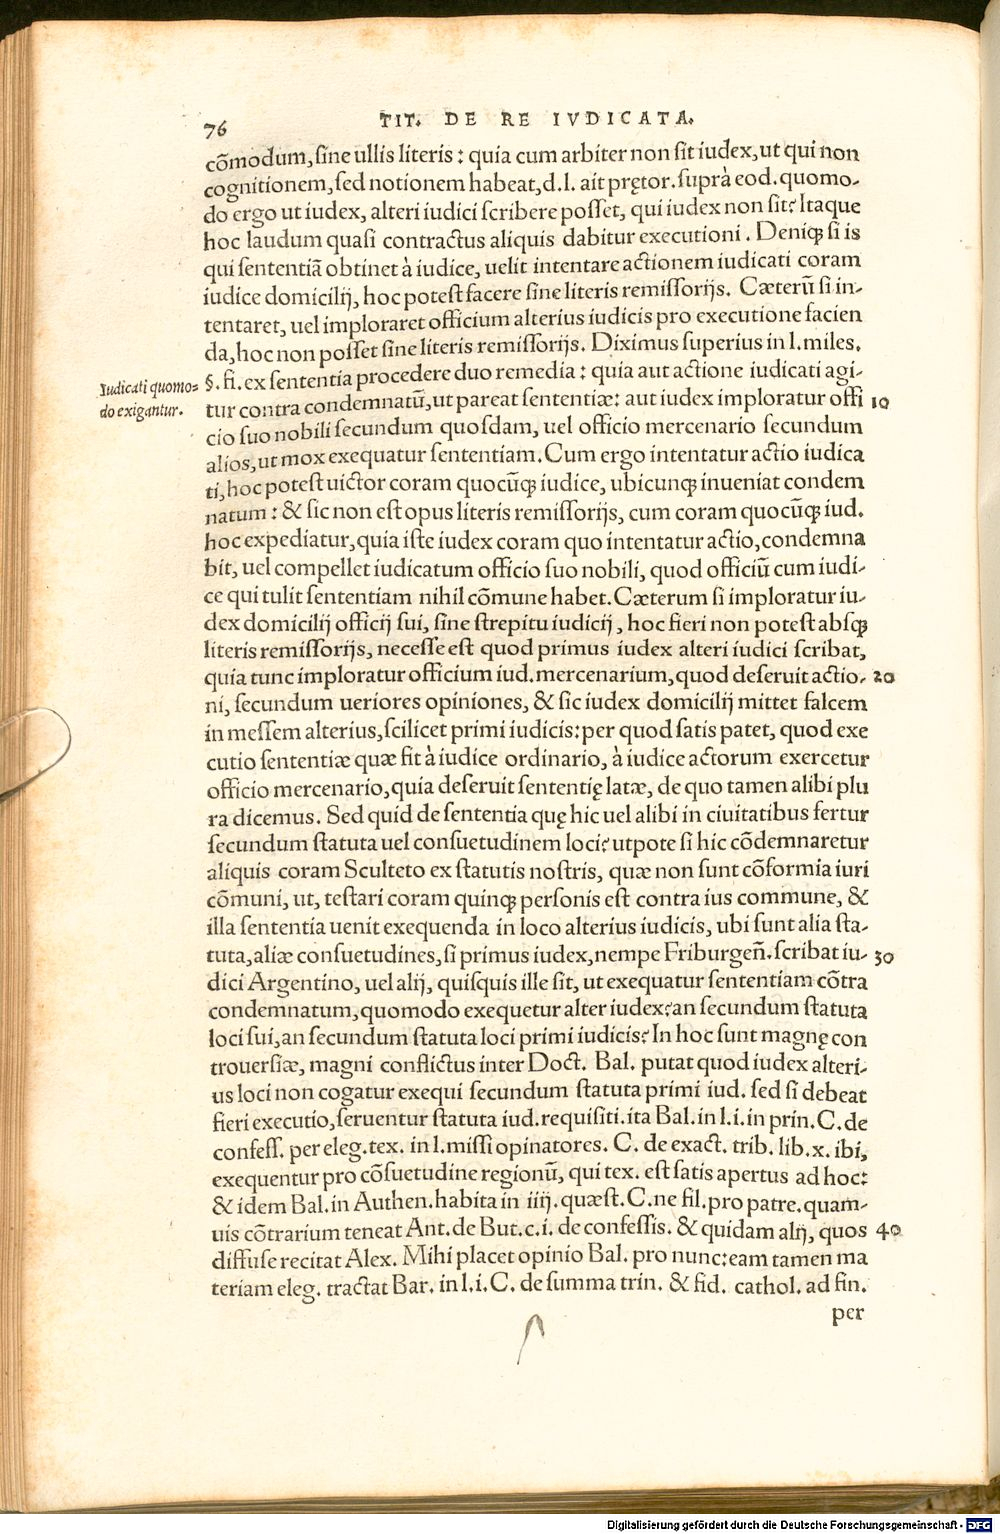 76
TIT. DE RE IVDICATA.
cōmodum, sine ullis literis: quia cum arbiter non sit iudex, ut qui non
cognitionem, sed notionem habeat, d. l. ait prętor. suprà eod. quomo-
do ergo ut iudex, alteri iudici scribere posset, qui iudex non sit? Itaque
hoc laudum quasi contractus aliquis dabitur executioni. Deniqȝ si is
qui sententiā obtinet à iudice, uelit intentare actionem iudicati coram
iudice domicilij, hoc potest facere sine literis remissorijs. Cæterū si in-
tentaret, uel imploraret officium alterius iudicis pro executione facien
da, hoc non posset sine literis remissorijs. Diximus superius in l. miles.
Iudicati quomo=
do exigantur.
§. fi. ex sententia procedere duo remedia: quia aut actione iudicati agi-
tur contra condemnatū, ut pareat sententiæ: aut iudex imploratur offi 10
cio suo nobili secundum quosdam, uel officio mercenario secundum
alios, ut mox exequatur sententiam. Cum ergo intentatur actio iudica
ti, hoc potest uictor coram quocūqȝ iudice, ubicunqȝ inueniat condem
natum: & sic non est opus literis remissorijs, cum coram quocūqȝ iud.
hoc expediatur, quia iste iudex coram quo intentatur actio, condemna
bit, uel compellet iudicatum officio suo nobili, quod officiū cum iudi-
ce qui tulit sententiam nihil cōmune habet. Cæterum si imploratur iu-
dex domicilij officij sui, sine strepitu iudicij, hoc fieri non potest absqȝ
literis remissorijs, necesse est quod primus iudex alteri iudici scribat,
quia tunc imploratur officium iud. mercenarium, quod deseruit actio- 20
ni, secundum ueriores opiniones, & sic iudex domicilij mittet falcem
in messem alterius, scilicet primi iudicis: per quod satis patet, quod exe
cutio sententiæ quæ fit à iudice ordinario, à iudice actorum exercetur
officio mercenario, quia deseruit sententię latæ, de quo tamen alibi plu
ra dicemus. Sed quid de sententia quę hic uel alibi in ciuitatibus fertur
secundum statuta uel consuetudinem loci? utpote si hic cōdemnaretur
aliquis coram Sculteto ex statutis nostris, quæ non sunt cōformia iuri
cōmuni, ut, testari coram quinqȝ personis est contra ius commune, &
illa sententia uenit exequenda in loco alterius iudicis, ubi sunt alia sta-
tuta, aliæ consuetudines, si primus iudex, nempe Friburgen̄. scribat iu- 30
dici Argentino, uel alij, quisquis ille sit, ut exequatur sententiam cōtra
condemnatum, quomodo exequetur alter iudex? an secundum statuta
loci sui, an secundum statuta loci primi iudicis? In hoc sunt magnę con
trouersiæ, magni conflictus inter Doct. Bal. putat quod iudex alteri-
us loci non cogatur exequi secundum statuta primi iud. sed si debeat
fieri executio, seruentur statuta iud. requisiti. ita Bal. in l. i. in prin. C. de
confess. per eleg. tex. in l. missi opinatores. C. de exact. trib. lib. x. ibi,
exequentur pro cōsuetudine regionū, qui tex. est satis apertus ad hoc:
& idem Bal. in Authen. habita in iiij. quæst. C. ne fil. pro patre. quam-
uis cōtrarium teneat Ant. de But. c. i. de confessis. & quidam alij, quos 40
diffuse recitat Alex. Mihi placet opinio Bal. pro nunc: eam tamen ma
teriam eleg. tractat Bar. in l. i. C. de summa trin. & fid. cathol. ad fin.
per
Digitalisierung gefördert durch die Deutsche Forschungsgemeinschaft - DFG